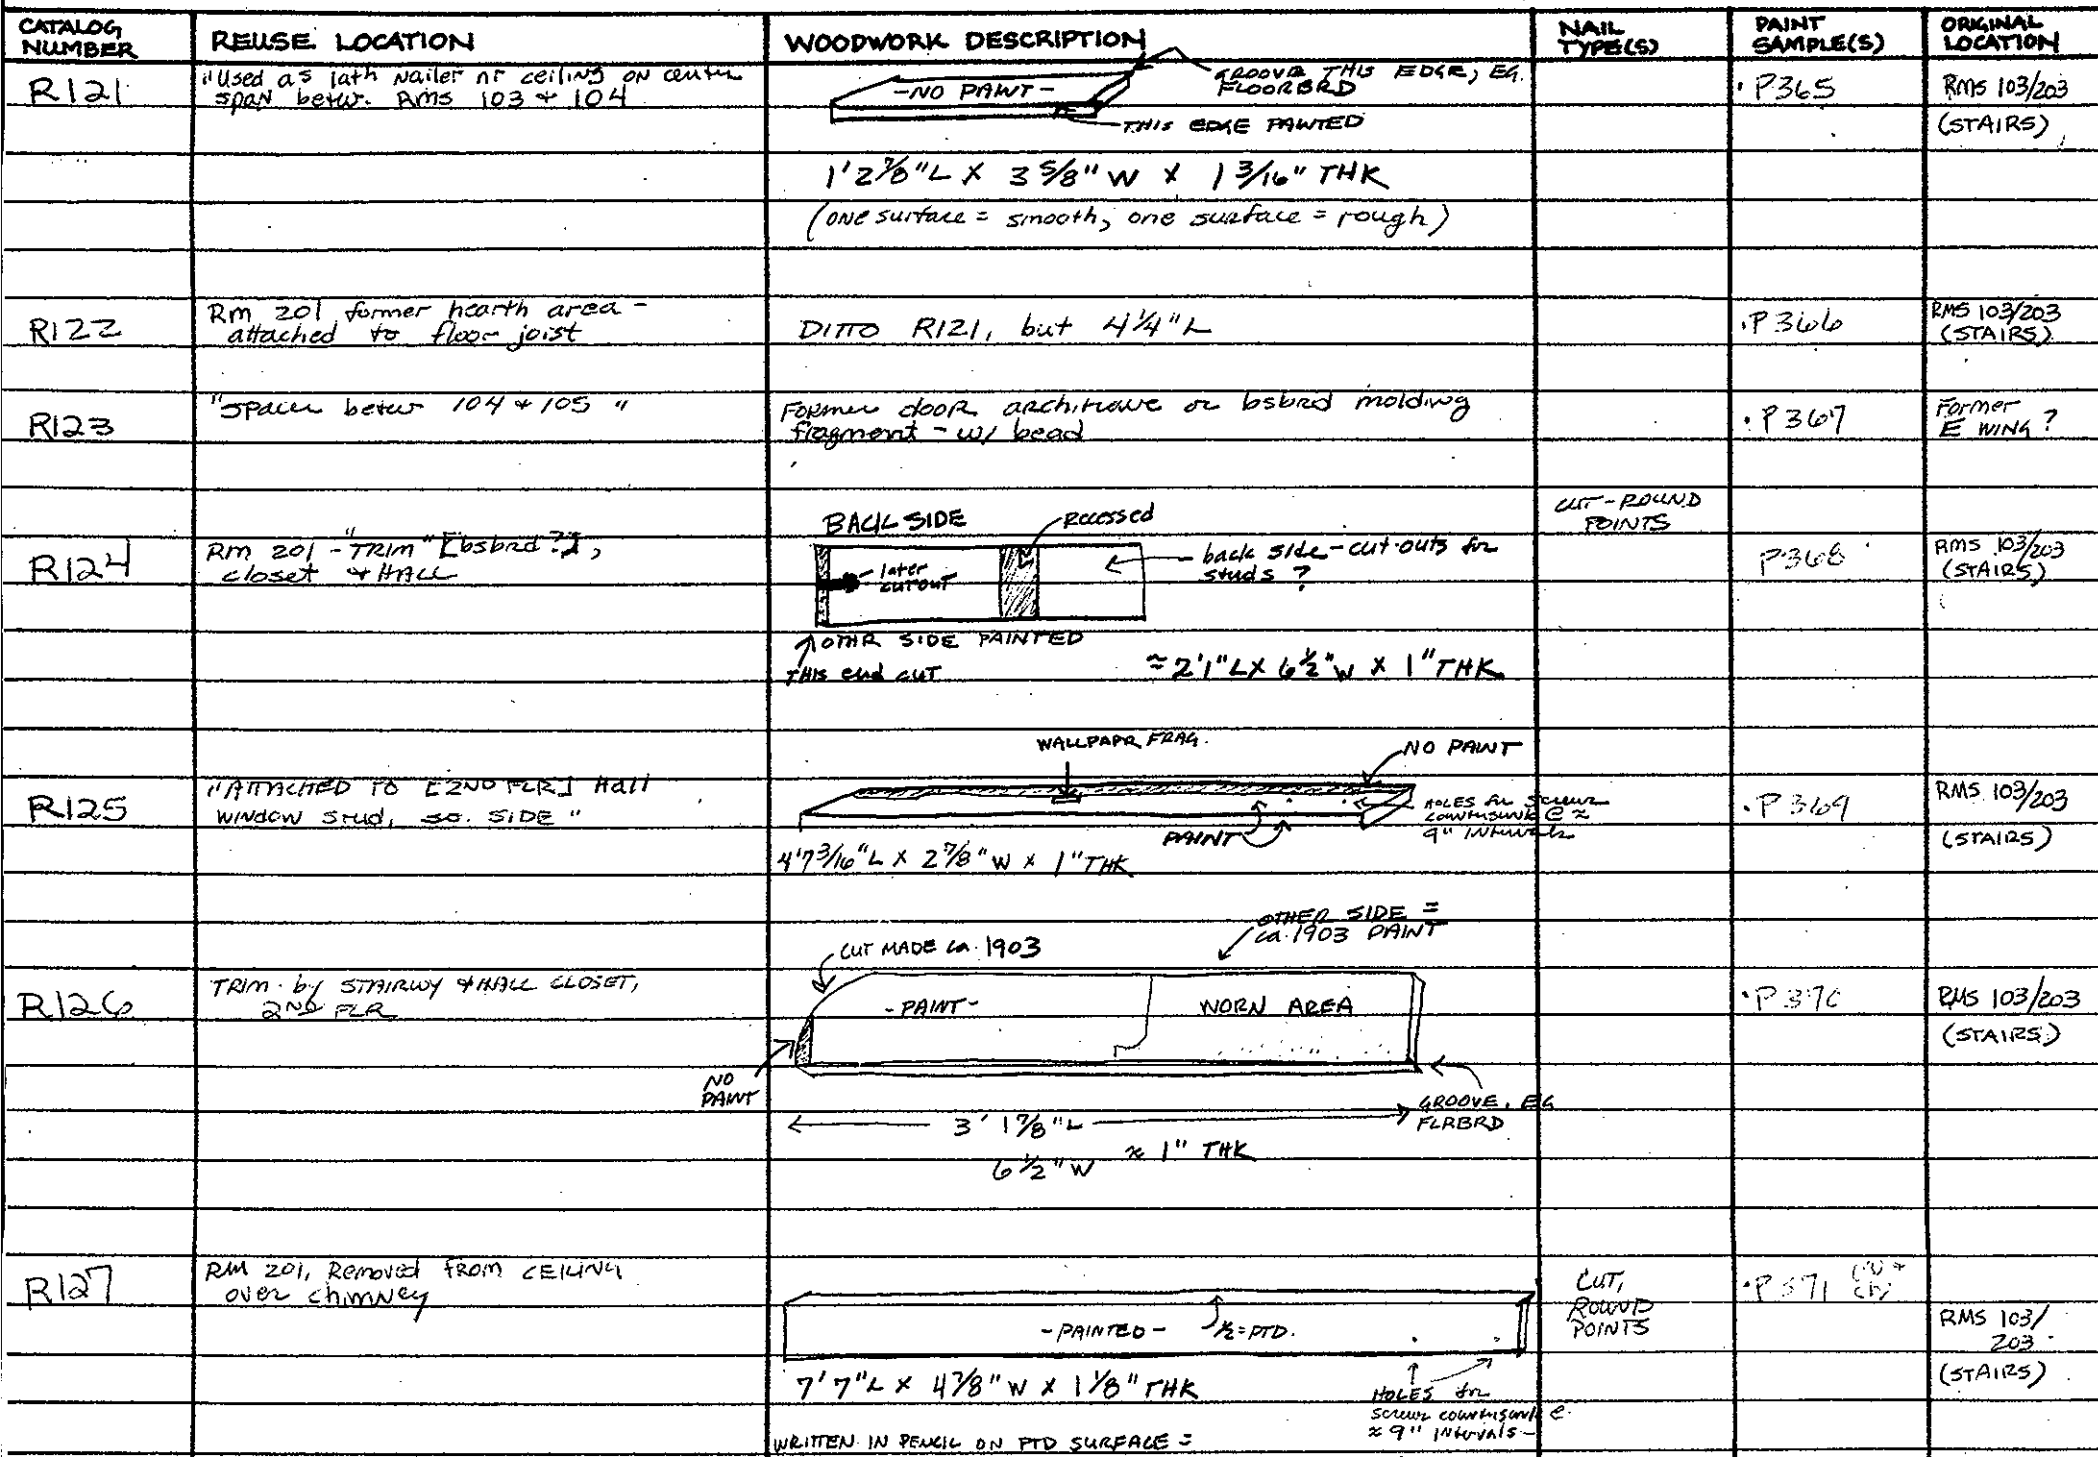 CATALOG NUMBER
REUSE LOCATION
WOODWORK DESCRIPTION
NAIL TYPE(S)
PAINT SAMPLE(S)
ORIGINAL LOCATION
R121
"Used as lath nailer nr ceiling on center
span betw. Rms 103 + 104
-NO PAINT-
GROOVE THIS EDGE, EG.
FLOORBRD
THIS EDGE PAINTED
1'2 7/8"L X 3 5/8" W X 1 3/16" THK
(one surface = smooth, one surface = rough)
· P365
RMS 103/203
(STAIRS)
R122
Rm 201 former hearth area -
attached to floor joist
DITTO R121, but 4 1/4"L
· P366
RMS 103/203
(STAIRS)
R123
"Spacer betw 104 + 105 "
Former door architrave or bsbrd molding
fragment - w/ bead
· P367
Former
E WING ?
R124
Rm 201 - "TRIM" [bsbrd ?],
closet + HALL
BACK SIDE
recessed
later
cutout
back side - cut-outs for
studs ?
OTHR SIDE PAINTED
THIS end CUT
≈ 2'1"L X 6 1/2"W X 1"THK
CUT - ROUND
POINTS
P368
RMS 103/203
(STAIRS)
R125
"ATTACHED TO [2ND FLR] Hall
window stud, so. SIDE "
WALLPAPR FRAG.
NO PAINT
PAINT
HOLES for screws
countersunk @ ≈
9" intervals
4'7 3/16"L X 2 7/8"W X 1"THK
· P369
RMS 103/203
(STAIRS)
R126
TRIM by STAIRWY + HALL CLOSET,
2ND FLR
CUT MADE ca. 1903
OTHER SIDE =
ca. 1903 PAINT
-PAINT-
WORN AREA
NO
PAINT
GROOVE, EG
FLRBRD
3' 1 7/8"L
6 1/2"W ≈ 1" THK
· P370
RMS 103/203
(STAIRS)
R127
RM 201, Removed from CEILING
over chimney
-PAINTED-
1/2 = PTD.
7'7"L X 4 7/8"W X 1 1/8"THK
HOLES for
screws countersunk @
≈ 9" intervals
WRITTEN IN PENCIL ON PTD SURFACE =
CUT,
ROUND
POINTS
· P371
RMS 103/
203
(STAIRS)